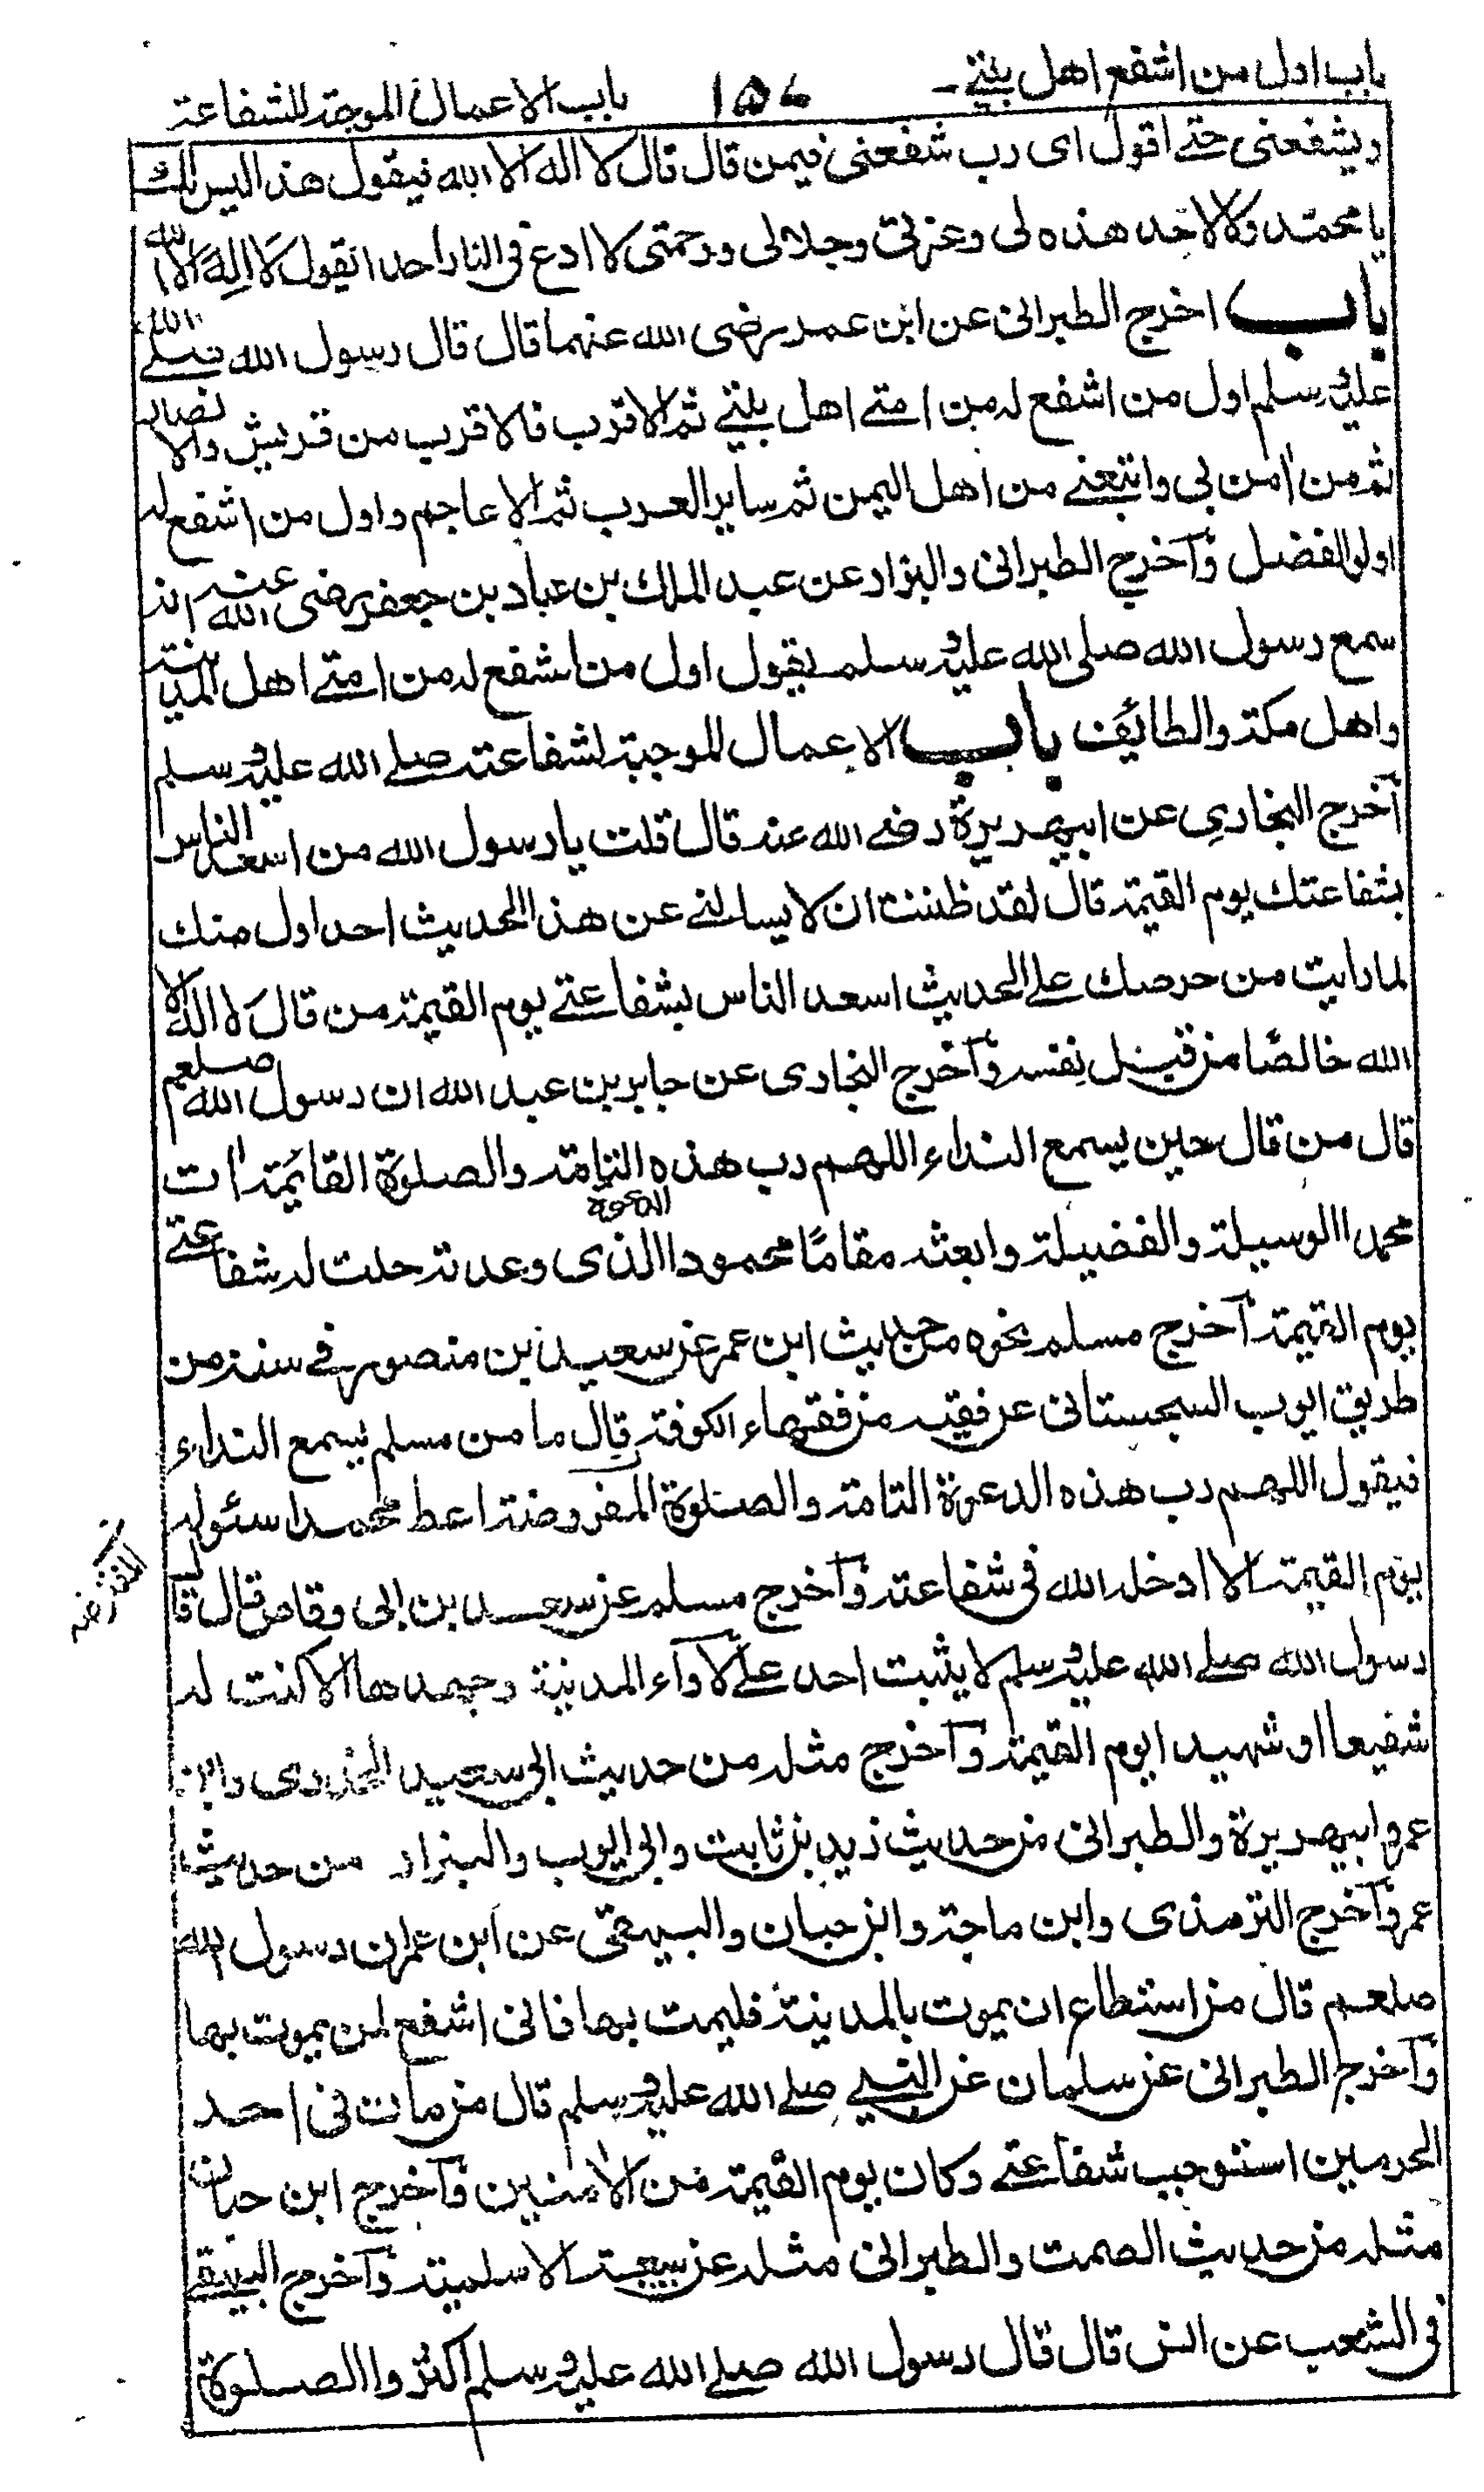 باب اول من اشفع اهل بيتے ۱۵۷ باب الاعمال الموجبة للشفاعة
ويشفعنى حتے اقول اى رب شفعنى فيمن قال قال لا اله الا الله فيقول هذا ليس لك
يا محمد ولا لاحد هذه لى وعزتى وجلالى ورحمتى لا ادع فى النار احدا يقول لا اله الا الله
باب اخرج الطبرانى عن ابن عمر رضى الله عنهما قال قال رسول الله صلے الله
عليه وسلم اول من اشفع له من امتے اهل بيتے ثم الاقرب فالاقرب من قريش والانصار
ثم من امن بى واتبعنے من اهل اليمن ثم ساير العرب ثم الاعاجم واول من اشفع له
اولو الفضل وآخرج الطبرانى والبزار عن عبد الملك بن عباد بن جعفر رضى الله عنه انه
سمع رسول الله صلى الله عليه وسلم يقول اول من اشفع له من امتے اهل المدينة
واهل مكة والطائف باب الاعمال الموجبة لشفاعته صلے الله عليه وسلم
آخرج البخارى عن ابيهريرة رضے الله عنه قال قلت يا رسول الله من اسعد الناس
بشفاعتك يوم القيمة قال لقد ظننت ان لا يسالنے عن هذا الحديث احد اول منك
لما رايت من حرصك علے الحديث اسعد الناس بشفاعتے يوم القيمة من قال لا اله الا
الله خالصًا من قبل نفسه وآخرج البخارى عن جابر بن عبد الله ان رسول الله صلعم
قال من قال حين يسمع النداء اللهم رب هذه الدعوة التامة والصلوة القائمة ات
محمدا الوسيلة والفضيلة وابعثه مقامًا محمودا الذى وعدته حلت له شفاعتے
يوم القيمة آخرج مسلم نحوه من حديث ابن عمر عن سعيد بن منصور فے سننه من
طريق ايوب السجستانى عن فقيه من فقهاء الكوفة قال ما من مسلم يسمع النداء
فيقول اللهم رب هذه الدعوة التامة والصلوة المفروضة اعط محمدا سئوله
المفترضه
يوم القيمة الا ادخله الله فى شفاعته وآخرج مسلم عن سعد بن ابى وقاص قال قال
رسول الله صلے الله عليه وسلم لا يثبت احد علے لاواء المدينة وجهدها الا كنت له
شفيعا او شهيدا يوم القيمة وآخرج مثله من حديث ابى سعيد الخدرى وابن
عمر وابيهريرة والطبرانى من حديث زيد بن ثابت وابى ايوب والبزار من حديث
عمر وآخرج الترمذى وابن ماجة وابن حبان والبيهقى عن ابن عمر ان رسول الله
صلعم قال من استطاع ان يموت بالمدينة فليمت بها فانى اشفع لمن يموت بها
وآخرج الطبرانى عن سلمان عن النبے صلے الله عليه وسلم قال من مات فى احد
الحرمين استوجب شفاعتے وكان يوم القيمة من الامنين وآخرج ابن حبان
مثله من حديث الصمت والطبرانى مثله عن سبيعة الاسلمية وآخرج البيهقے
فى الشعب عن انس قال قال رسول الله صلے الله عليه وسلم اكثروا الصلوة